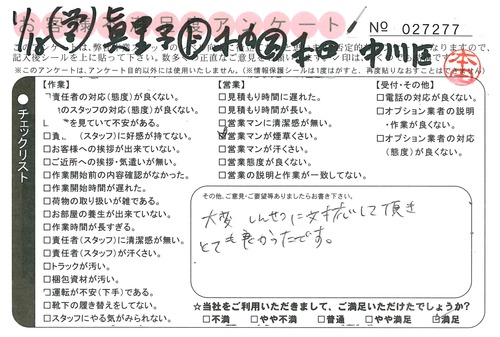 お客様満足度アンケート
No 027277
中川区
※このアンケートは、アンケート目的以外には使用いたしません。(※情報保護シールは1度がすと、再度貼りなおすことはできません)
チェックリスト
【作業】
責任者の対応(態度)が良くない。
のスタッフの対応(態度)が良くない。
を見ていて不安がある。
(スタッフ)に好感が持てない。
□お客様への挨拶が出来ていない。
□ご近所への挨拶・気遣いが無い。
□作業開始前の内容確認がなかった。
□作業開始時間が遅れた。
□荷物の取り扱いが雑である。
□お部屋の養生が出来ていない。
□作業時間が長すぎる。
□責任者(スタッフ)に清潔感が無い。
□責任者(スタッフ)が汗くさい。
□トラックが汚い。
□梱包資材が汚い。
□運転が不安(下手)である。
□靴下の履き替えをしてない。
□スタッフにやる気がみられない。
【営業】
□見積もり時間に遅れた。
□見積もり時間が長い。
□営業マンに清潔感が無い。
□営業マンが煙草くさい。
□営業マンが汗くさい。
□営業態度が良くない。
□営業の説明と作業が一致してない。
【受付・その他】
□電話の対応が良くない。
□オプション業者の説明
・作業が良くない。
□オプション業者の対応
(態度)が良くない。
その他、ご意見・ご要望等ありましたらお書き下さい。
大変 しんせつに対応して頂き
とても良かったです。
☆当社をご利用いただきまして、ご満足いただけたでしょうか?
□不満 □やや不満 □普通 □やや満足 □満足